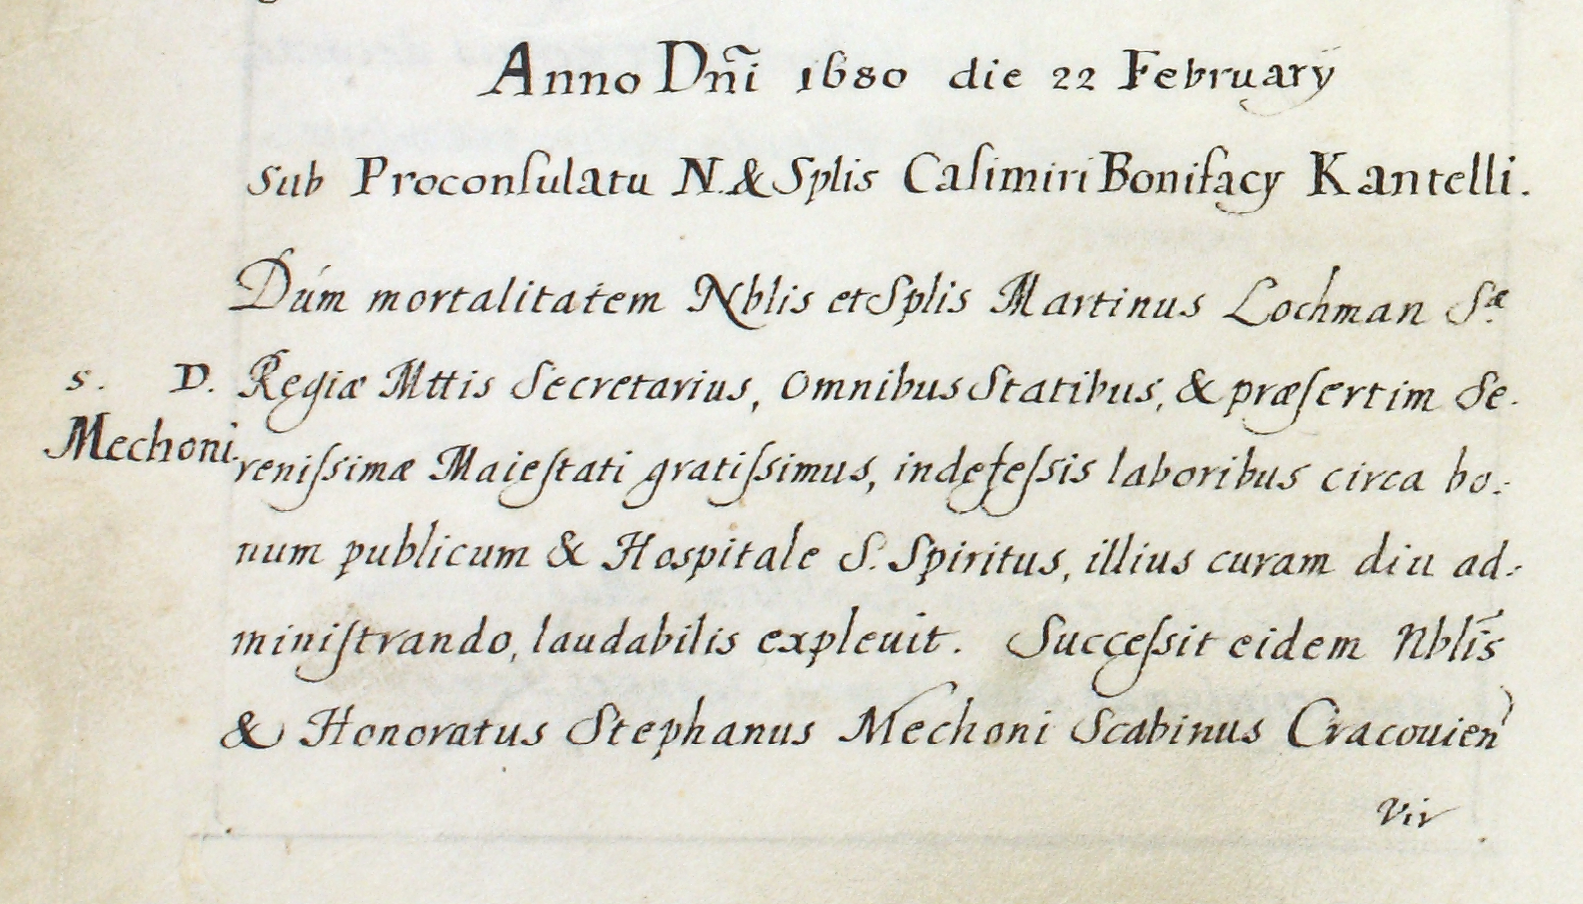 Anno Dñi 1680 die 22 Februarÿ
Sub Proconſulatu N. & Splis Caſimiri Bonifacy Kantelli.
Dúm mortalitatem Nblis et Splis Martinus Lochman Sæ
s. D. Regiæ Mttis Secretarius, omnibus Statibus, & præſertim Se-
Mechoni. reniſsimæ Maieſtati gratiſsimus, indefeſsis laboribus circa bo:
num publicum & Hospitale S. Spiritus, illius curam diu ad:
miniſtrando, laudabilis expleuit. Succeſsit eidem Nblis̃
& Honoratus Stephanus Mechoni Scabinus Cracouien̉
Vir